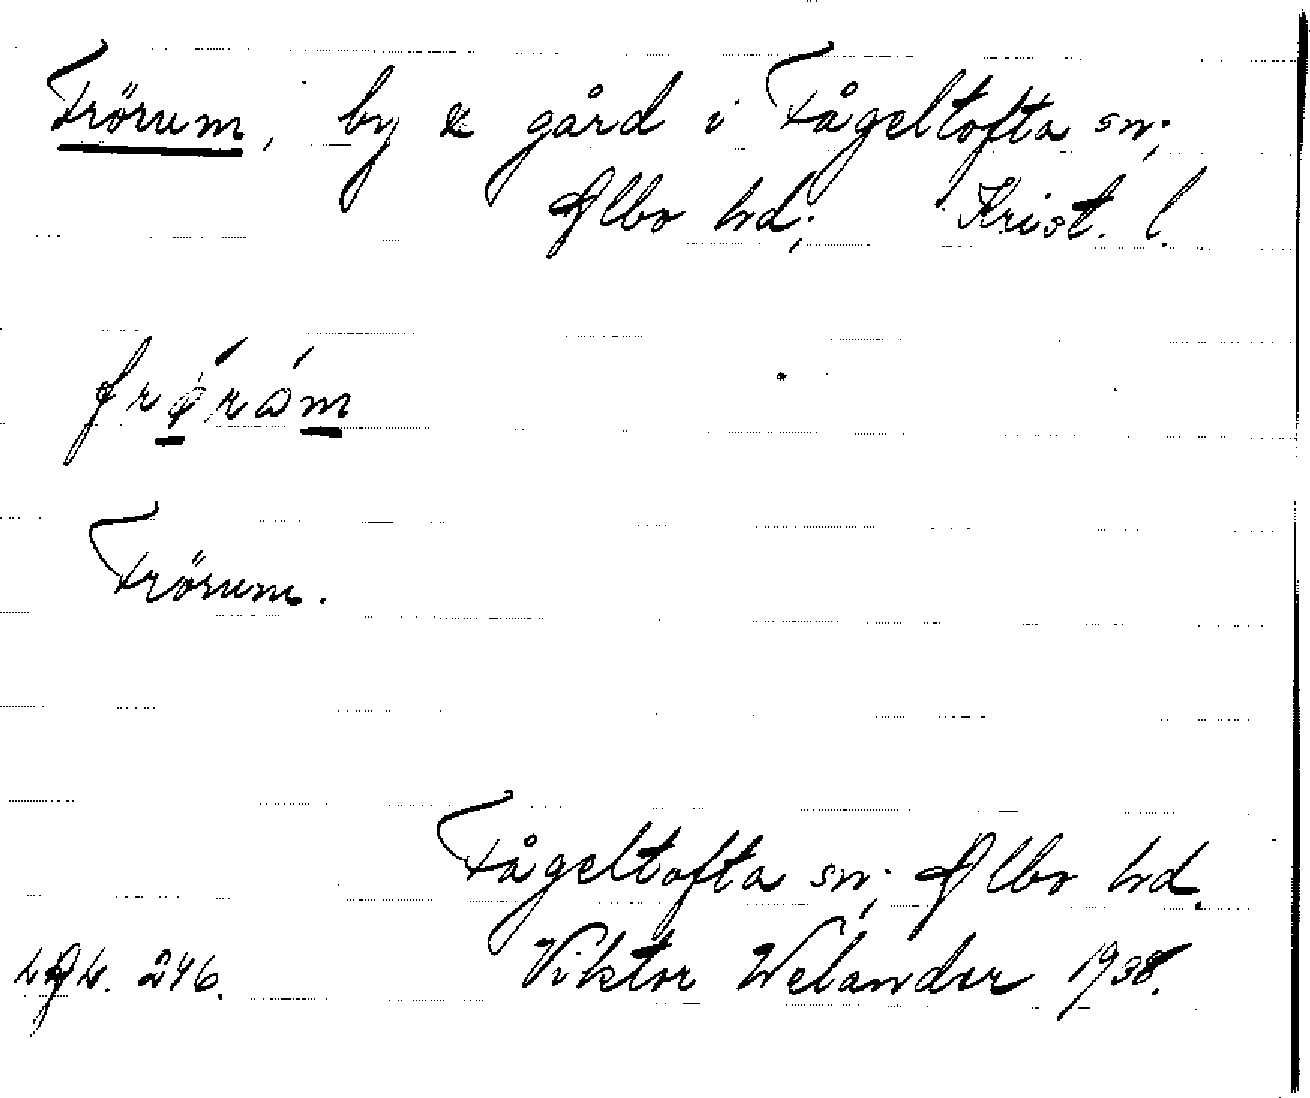 Frörum, by & gård i Fågeltofta sn;
Albo hd; Krist. l.
frǿrám
Frörum.
Fågeltofta sn; Albo hd.
246. Viktor Welander 1938.